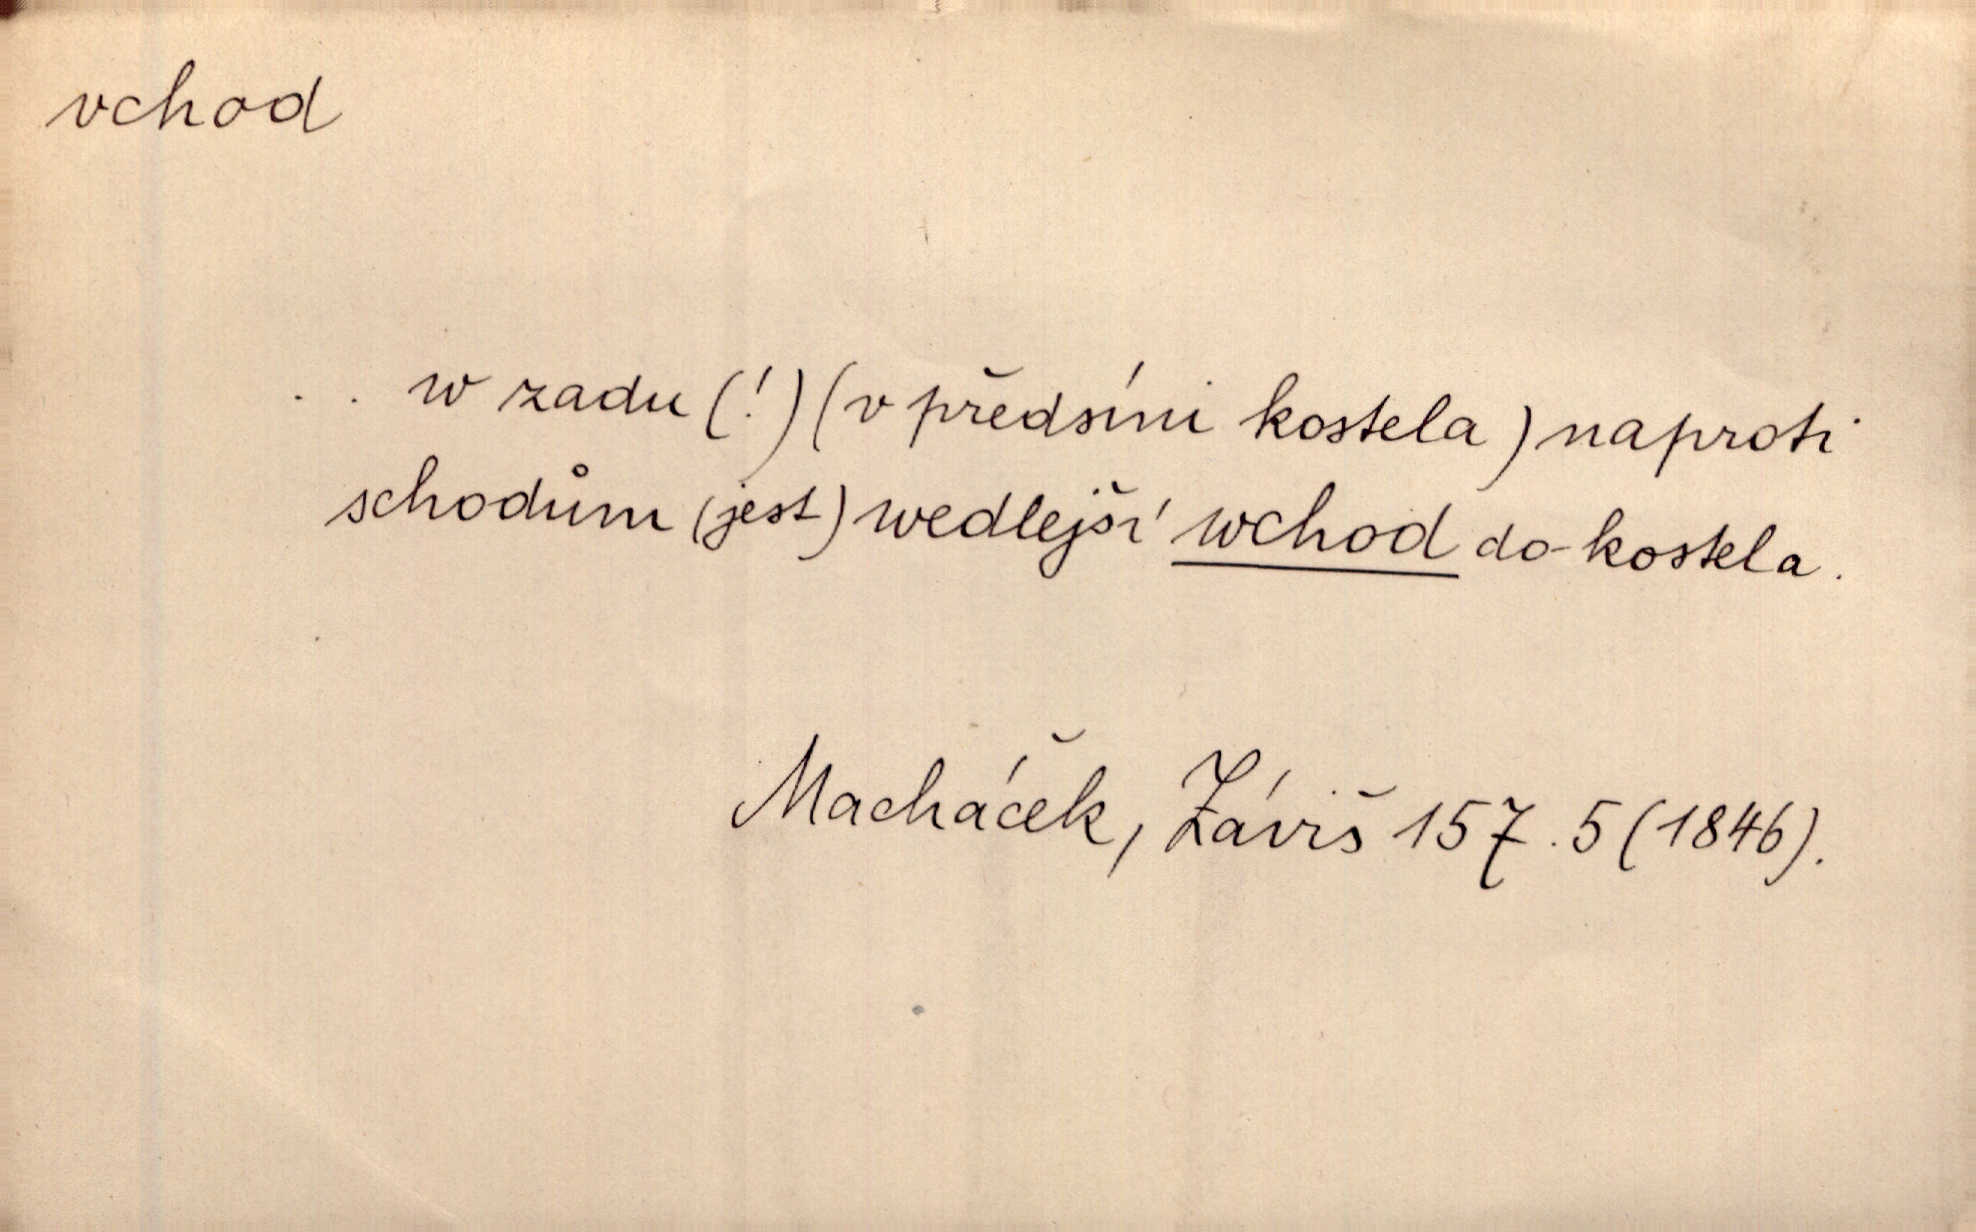 vchod
. . w zadu (!) (v předsíni kostela) naproti
schodům (jest) wedlejší wchod do kostela.
Macháček, Záviš 157.5 (1846).